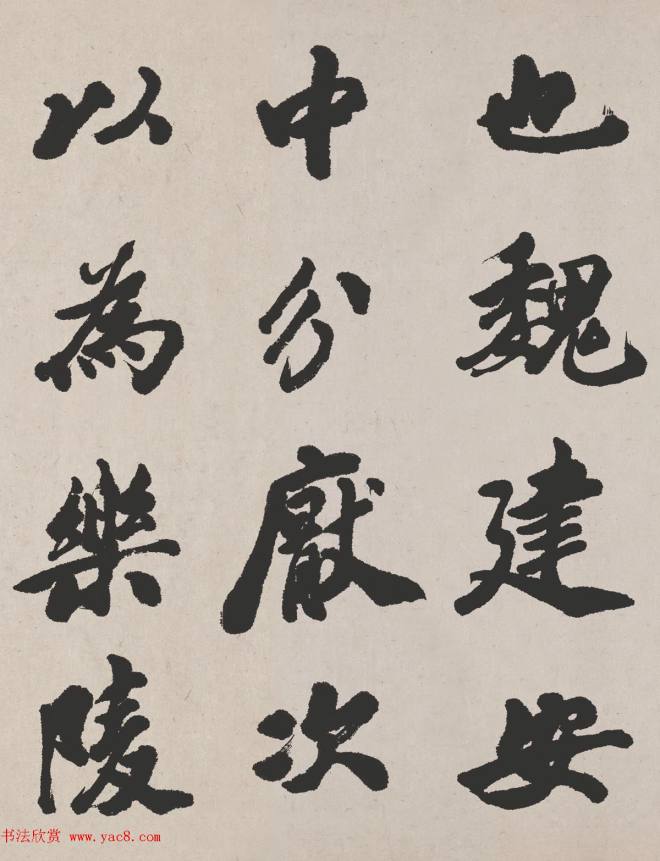 也魏建安
中分厭次
以為樂陵
书法欣赏 www.yac8.com